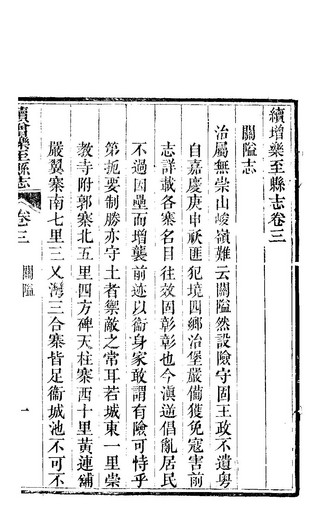 續增樂至縣志卷三
關隘志
治屬無崇山峻嶺難云關隘然設險守固王政不遺粵
自嘉慶庚申祅匪犯境四鄉治堡嚴備獲免寇害前
志詳載各寨名目往效固彰彰也今滇逆倡亂居民
不過因壘而增襲前迹以衞身家敢謂有險可恃乎
第扼要制勝亦守土者禦敵之常耳若城東一里崇
教寺附郭寨北五里四方碑天柱寨西十里黃連舖
嚴翼寨南七里三叉灣三合寨皆足衞城池不可不
續增樂至縣志
卷三
關隘
一